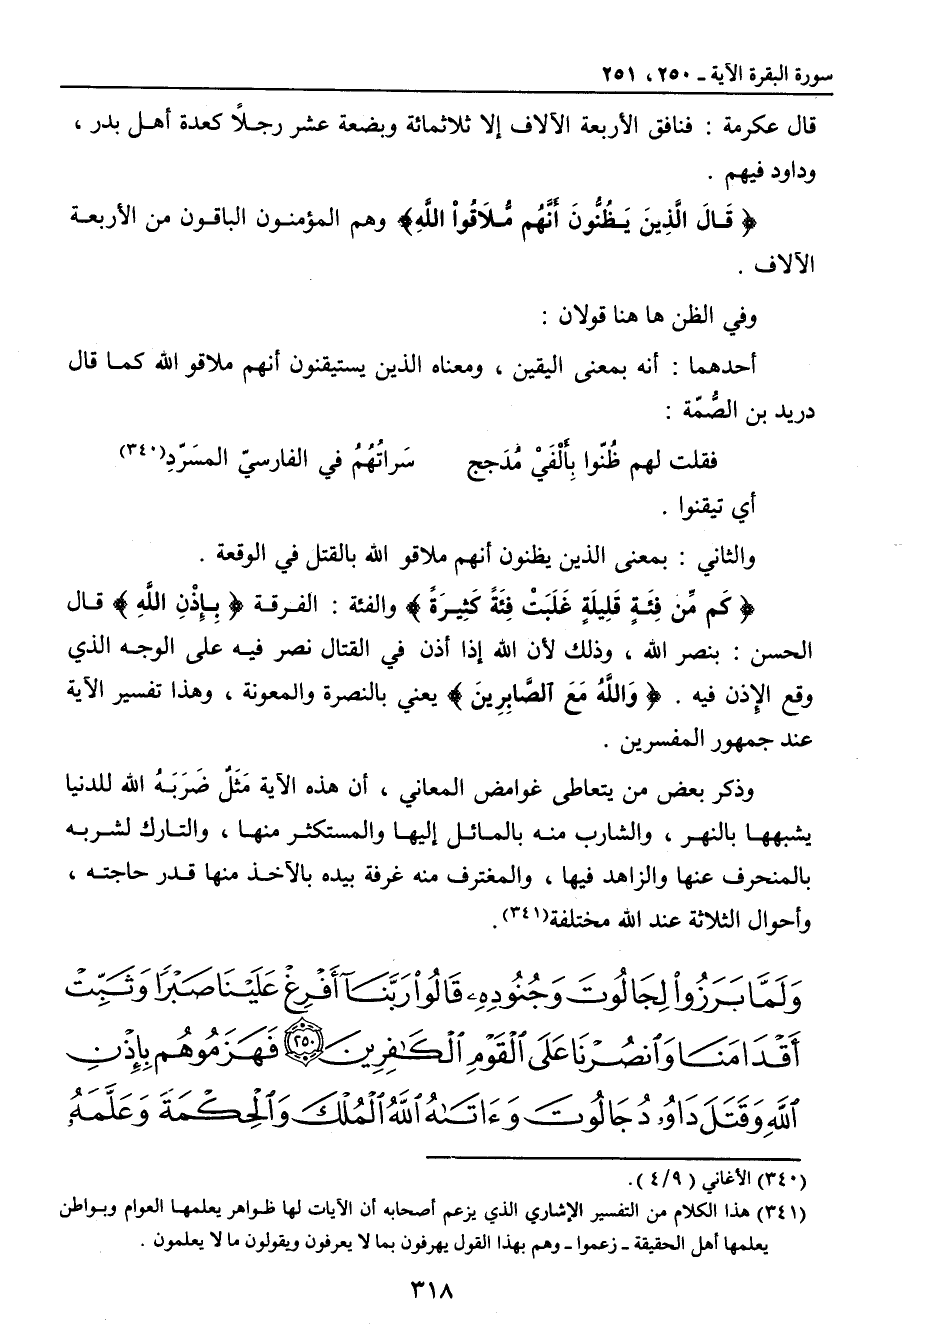 سورة البقرة الآية ـ ٢٥٠ ، ٢٥١
قال عكرمة : فنافق الأربعة الآلاف إلا ثلاثمائة وبضعة عشر رجلاً كعدة أهل بدر ،
وداود فيهم .
﴿ قَالَ الَّذِينَ يَظُنُّونَ أَنَّهُم مُّلَاقُواْ اللَّهِ﴾ وهم المؤمنون الباقون من الأربعة
الآلاف .
وفي الظن ها هنا قولان :
أحدهما : أنه بمعنى اليقين ، ومعناه الذين يستيقنون أنهم ملاقو الله كما قال
دريد بن الصُّمّة :
فقلت لهم ظُنّوا بِأَلْفَيْ مُدَجج سَراتُهُمُ في الفارسيّ المسَرّدِ(٣٤٠)
أي تيقنوا .
والثاني : بمعنى الذين يظنون أنهم ملاقو الله بالقتل في الوقعة .
﴿ كَم مِّن فِئَةٍ قَلِيلَةٍ غَلَبَتْ فِئَةً كَثِيرَةً ﴾ والفئة : الفرقة ﴿ بِإِذْنِ اللَّهِ ﴾ قال
الحسن : بنصر الله ، وذلك لأن الله إذا أذن في القتال نصر فيه على الوجه الذي
وقع الإِذن فيه . ﴿ وَاللَّهُ مَعَ الصَّابِرِينَ ﴾ يعني بالنصرة والمعونة ، وهذا تفسير الآية
عند جمهور المفسرين .
وذكر بعض من يتعاطى غوامض المعاني ، أن هذه الآية مَثَلٌ ضَرَبَهُ الله للدنيا
يشبهها بالنهر ، والشارب منه بالمائل إليها والمستكثر منها ، والتارك لشربه
بالمنحرف عنها والزاهد فيها ، والمغترف منه غرفة بيده بالآخذ منها قدر حاجته ،
وأحوال الثلاثة عند الله مختلفة(٣٤١).
وَلَمَّا بَرَزُواْ لِجَالُوتَ وَجُنُودِهِۦ قَالُواْ رَبَّنَآ أَفْرِغْ عَلَيْنَا صَبْرًا وَثَبِّتْ
أَقْدَامَنَا وَٱنصُرْنَا عَلَى ٱلْقَوْمِ ٱلْكَٰفِرِينَ ﴿٢٥٠﴾ فَهَزَمُوهُم بِإِذْنِ
ٱللَّهِ وَقَتَلَ دَاوُۥدُ جَالُوتَ وَءَاتَىٰهُ ٱللَّهُ ٱلْمُلْكَ وَٱلْحِكْمَةَ وَعَلَّمَهُۥ
(٣٤٠) الأغاني ( ٤/٩ ).
(٣٤١) هذا الكلام من التفسير الإشاري الذي يزعم أصحابه أن الآيات لها ظواهر يعلمها العوام وبواطن
يعلمها أهل الحقيقة ـ زعموا ـ وهم بهذا القول يهرفون بما لا يعرفون ويقولون ما لا يعلمون .
٣١٨